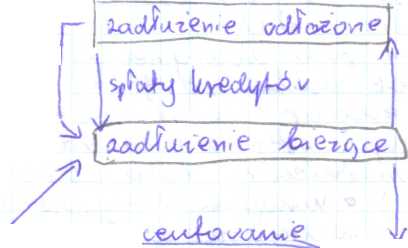 zadłużenie odłożone
spłaty kredytów
zadłużenie bieżące